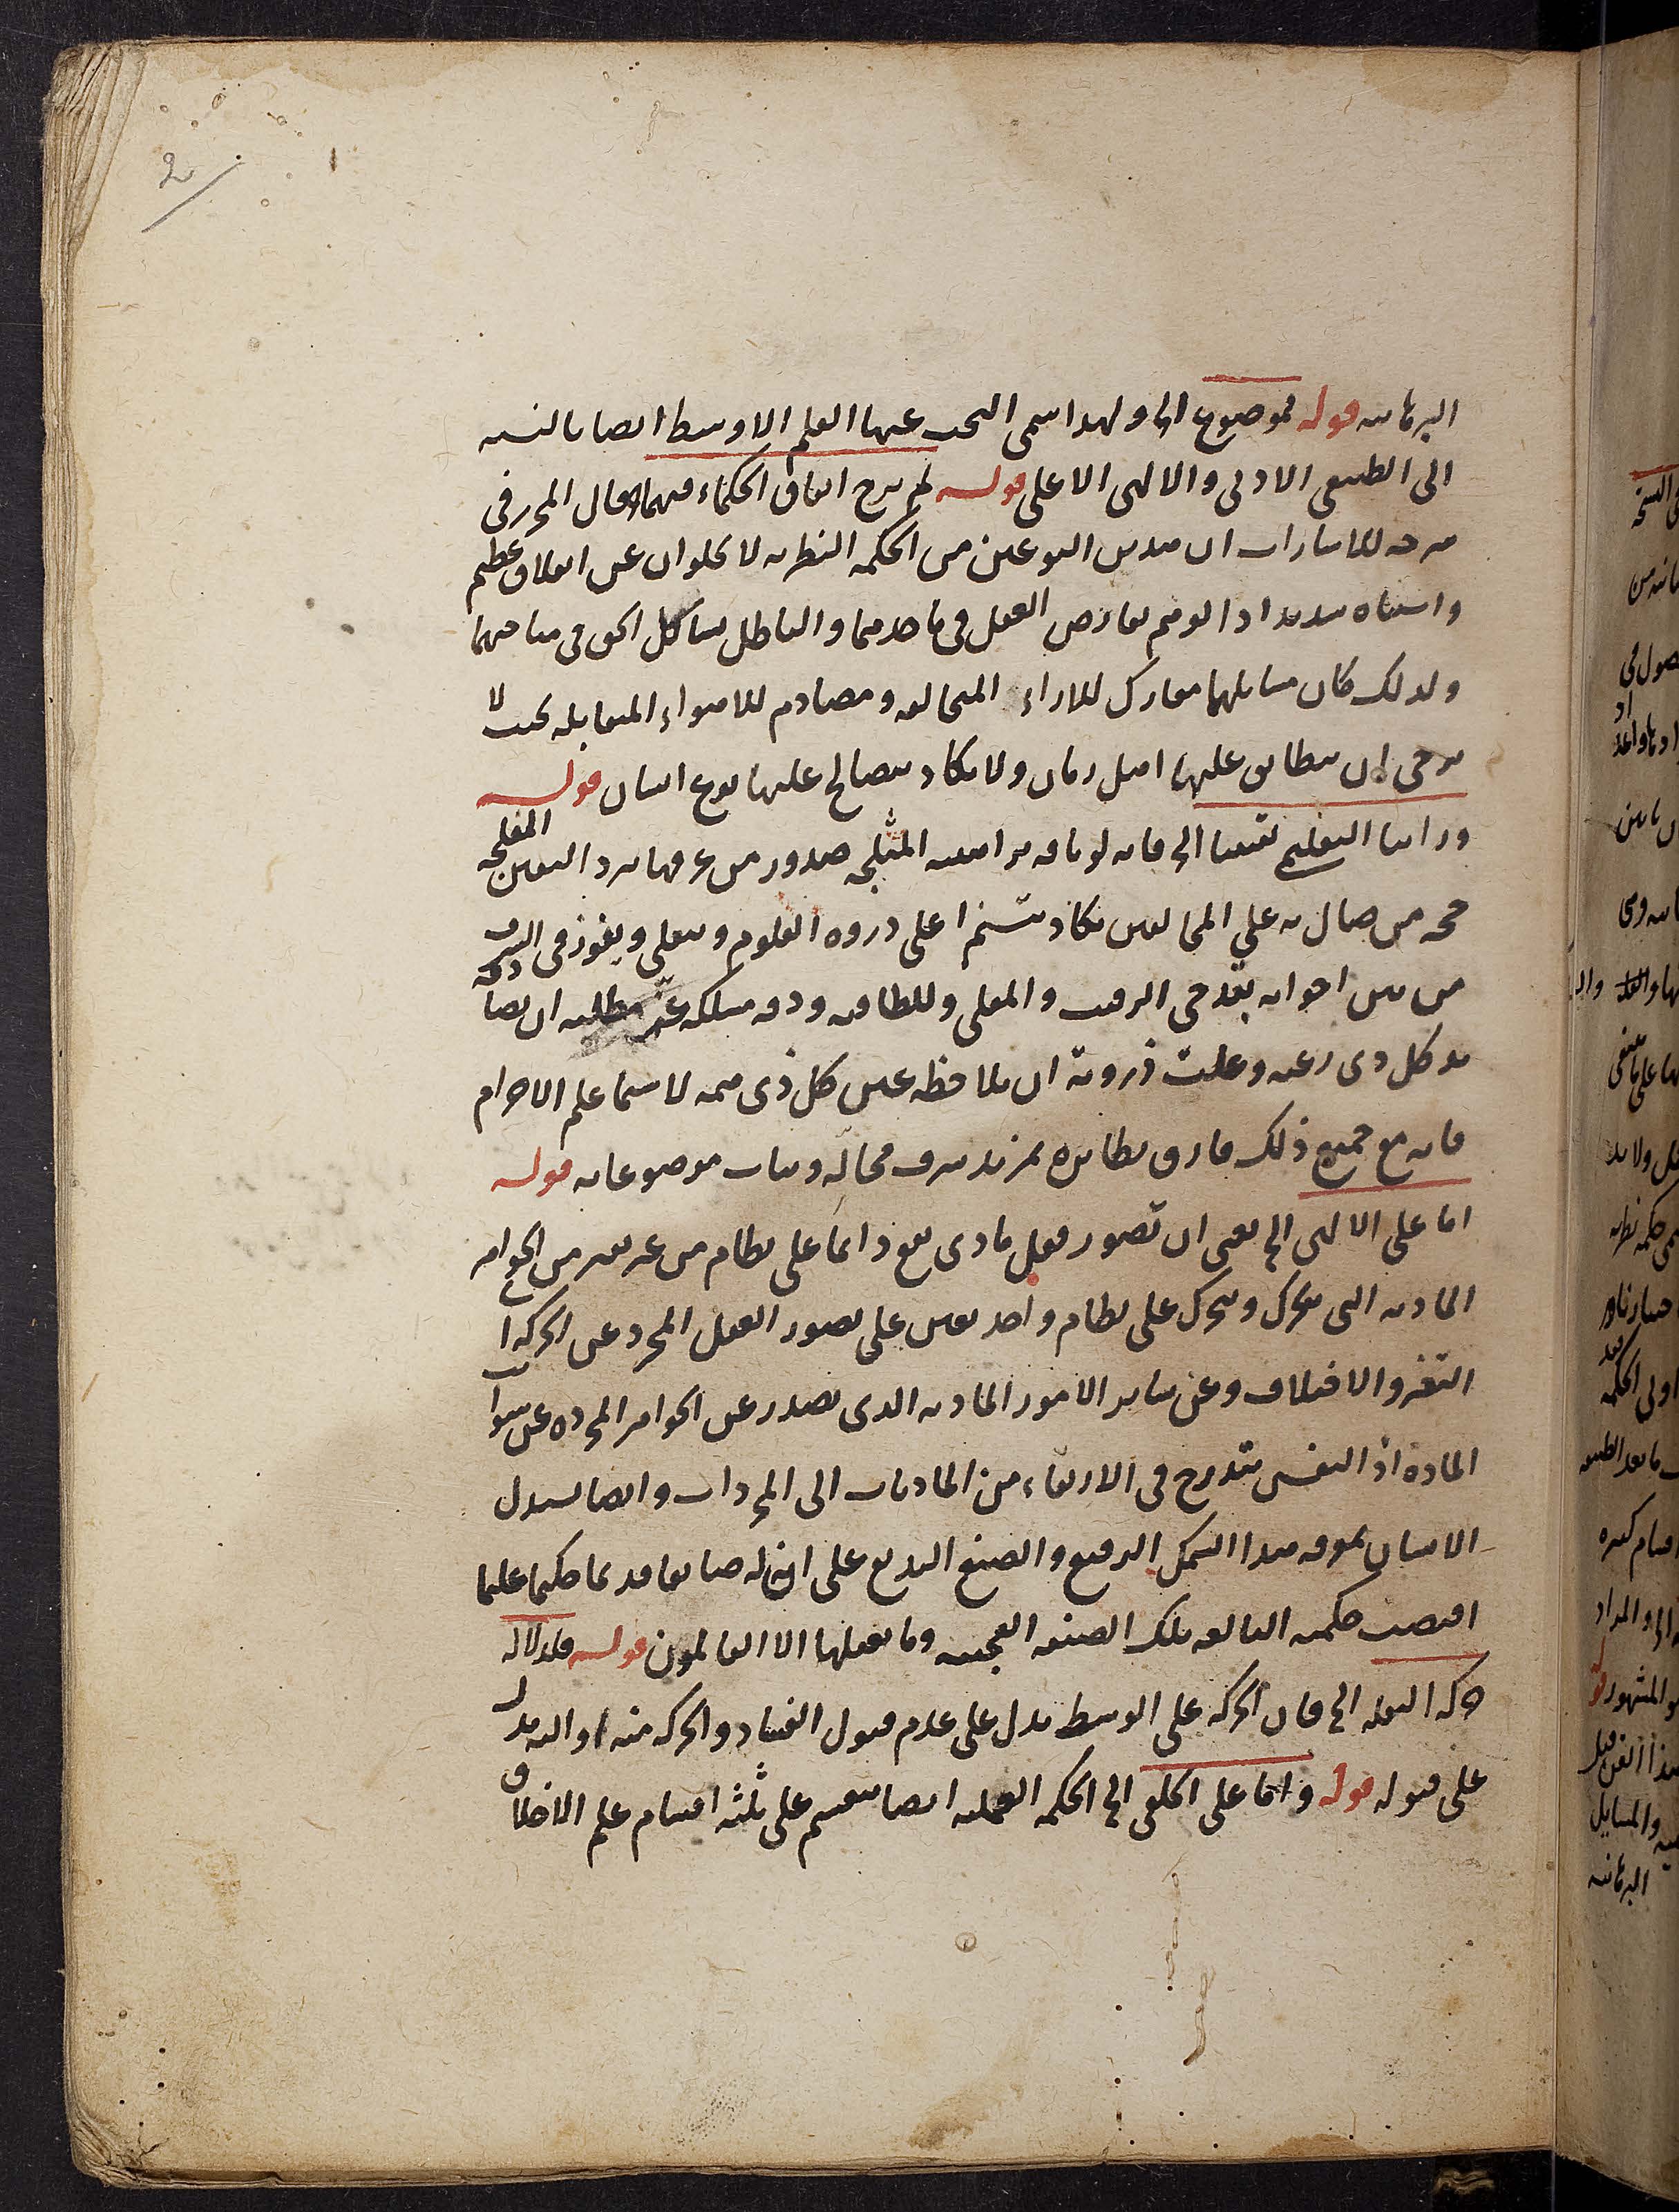 2
البرهانيه قوله فموضوع الخ ولهذا سمى البحث عنها العلم الاوسط ايضا بالنسبه
الى الطبيعى الادنى والالهى الاعلى قوله لم يرج اتفاق الحكماء فيهما قال المحرر فى
شرحه للاشارات ان هذين النوعين من الحكمه النظريه لا يخلوان عن انغلاق عظيم
واشتباه شديد اذ الوهم يعارض العقل فى ماخذهما والباطل يشاكل الحق فى مباحثهما
ولذلك كان مسايلهما معارك للاراء المتخالفه ومصادم للاهواء المتقابله بحيث لا
يرجى ان يتطابق عليها اهل زمان ولا يكاد يتصالح عليها نوع انسان قوله
وراينا التعليم الخ فانه لوثاقه براهينه المثلجه صدور من عرفها ببرد اليقين المفلجه
حجه من صال به على المخالفين يكاد يتسنم اعلى ذروه العلوم ويتعلى ويفوز فى الشرف
من بين اخوانه بقدحى الرقيب والمعلى وللطافه ودقه مسلكه عز مطلبه ان يصادفه
يد كل ذى رغبه وعلت ذروته ان يلاحظه عين كل ذى همه لا سيما علم الاجرام
فانه مع جميع ذلك فارق نظايره بمزيد شرف محاله وثبات موضوعاته قوله
اما على الالهى الخ يعنى ان تصور فعل مادى يقع دايما على نظام من غير تغير من الجواهر
الماديه التى تحرك وتتحرك على نظام واحد يعين على تصور الفعل المجرد عن الحركه ا
التغير والاختلاف وعن ساير الامور الماديه الذى يصدر عن الجواهر المجرده عن شوايب
الماده اذ النفس تتدرج فى الارتقاء من الماديات الى المجردات وايضا يستدل
الانسان بمعرفه هذا الشكل الرفيع والصنع البديع على ان له صانعا قديما حكيما عليما
اقتضت حكمته البالغه تلك الصنعه العجيبه وما يعقلها الا العالمون قوله فلدلاله
حركه الثقله الخ فان الحركه على الوسط يدل على عدم قبول الفساد والحركه منه او اليه يدل
على قبوله قوله واما على الخلقى الخ الحكمه العمليه ايضا ينقسم على ثلثه اقسام علم الاخلاق